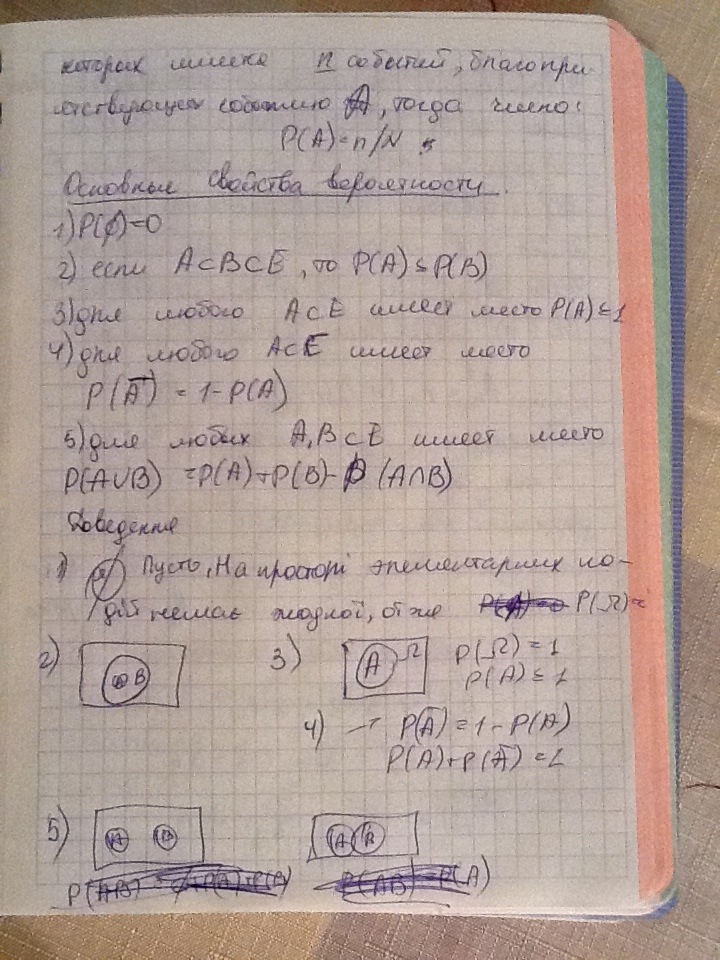 которых имеется n событий, благопри-
ятствующих событию A, тогда число:
P(A)=n/N
Основные свойства вероятности.
1) P(∅)=0
2) если A⊂B⊂E, то P(A)≤P(B)
3) для любого A⊂E имеет место P(A)≤1
4) для любого A⊂E имеет место
P(Ā) = 1-P(A)
5) для любых A,B⊂E имеет место
P(A∪B) = P(A)+P(B)-P(A∩B)
1) Пусто, н-а простой элементарных ис-
2) B
3) A Ω P(Ω)=1
P(A)≤1
4) P(Ā)=1-P(A)
P(A)+P(Ā)=1
5)